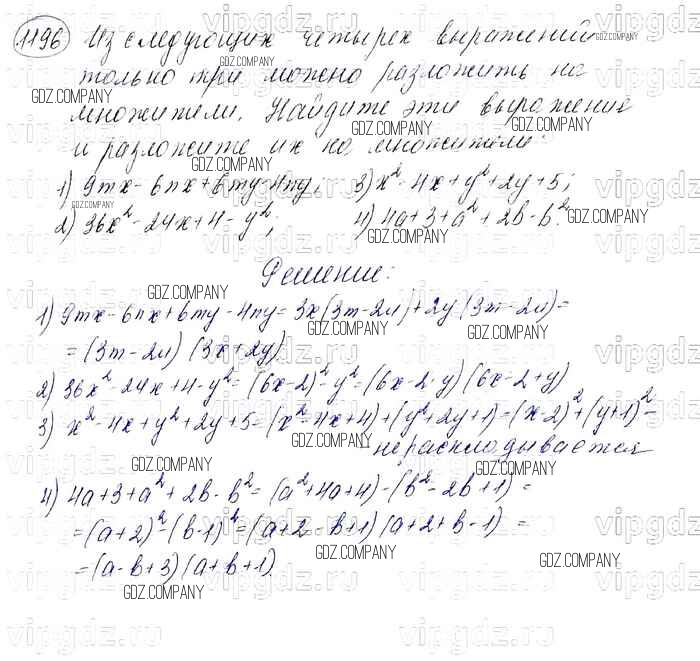 1196 Из следующих четырех выражений
только три можно разложить на
множители. Найдите эти выражения
и разложите их на множители:
1) 9mx - 6nx + 6my - 4ny; 3) x² - 4x + y² + 2y + 5;
2) 36x² - 24x + 4 - y²; 4) 4a + 3 + a² + 2b - b².
Решение:
1) 9mx - 6nx + 6my - 4ny = 3x(3m - 2n) + 2y(3m - 2n) =
= (3m - 2n) (3x + 2y)
2) 36x² - 24x + 4 - y² = (6x - 2)² - y² = (6x - 2 - y) (6x - 2 + y)
3) x² - 4x + y² + 2y + 5 = (x² - 4x + 4) + (y² + 2y + 1) = (x - 2)² + (y + 1)² -
- не раскладывается
4) 4a + 3 + a² + 2b - b² = (a² + 4a + 4) - (b² - 2b + 1) =
= (a + 2)² - (b - 1)² = (a + 2 - b + 1) (a + 2 + b - 1) =
= (a - b + 3) (a + b + 1).
GDZ.COMPANY
vipgdz.ru